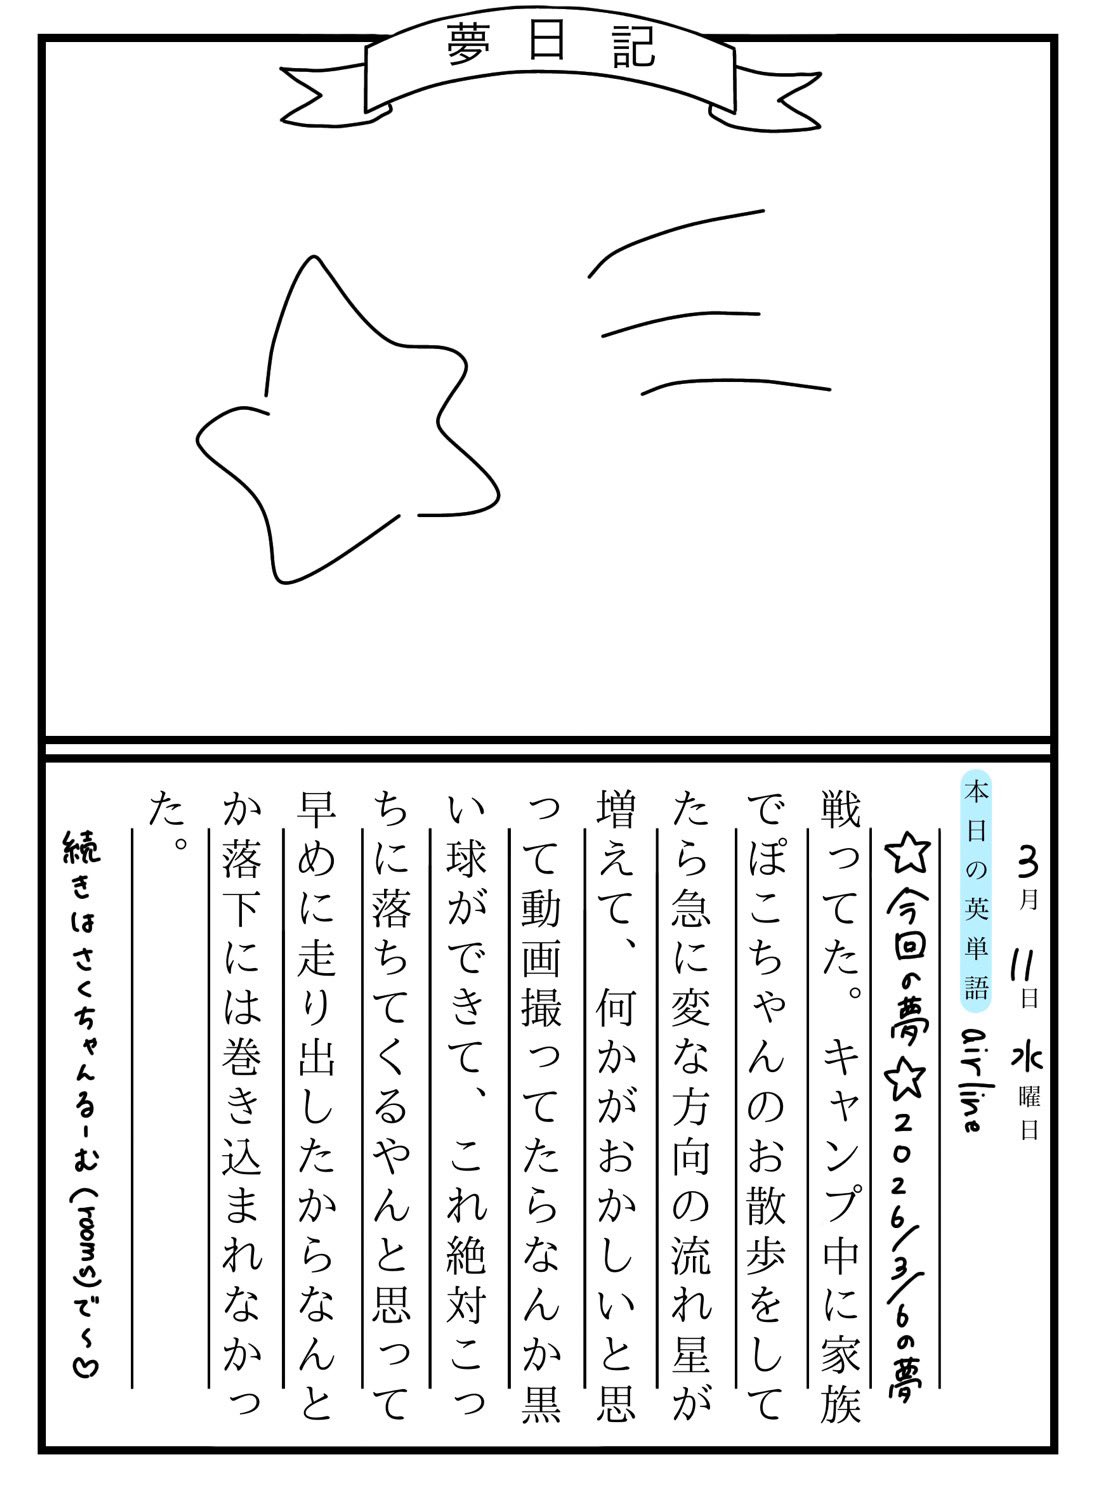 夢日記
3月11日水曜日
本日の英単語 airline
☆今回の夢☆2026/3/6の夢
戦ってた。キャンプ中に家族
でぽこちゃんのお散歩をして
たら急に変な方向の流れ星が
増えて、何かがおかしいと思
って動画撮ってたらなんか黒
い球ができて、これ絶対こっ
ちに落ちてくるやんと思って
早めに走り出したからなんと
か落下には巻き込まれなかっ
た。
続きはさくちゃんるーむ(rooms)で〜♡